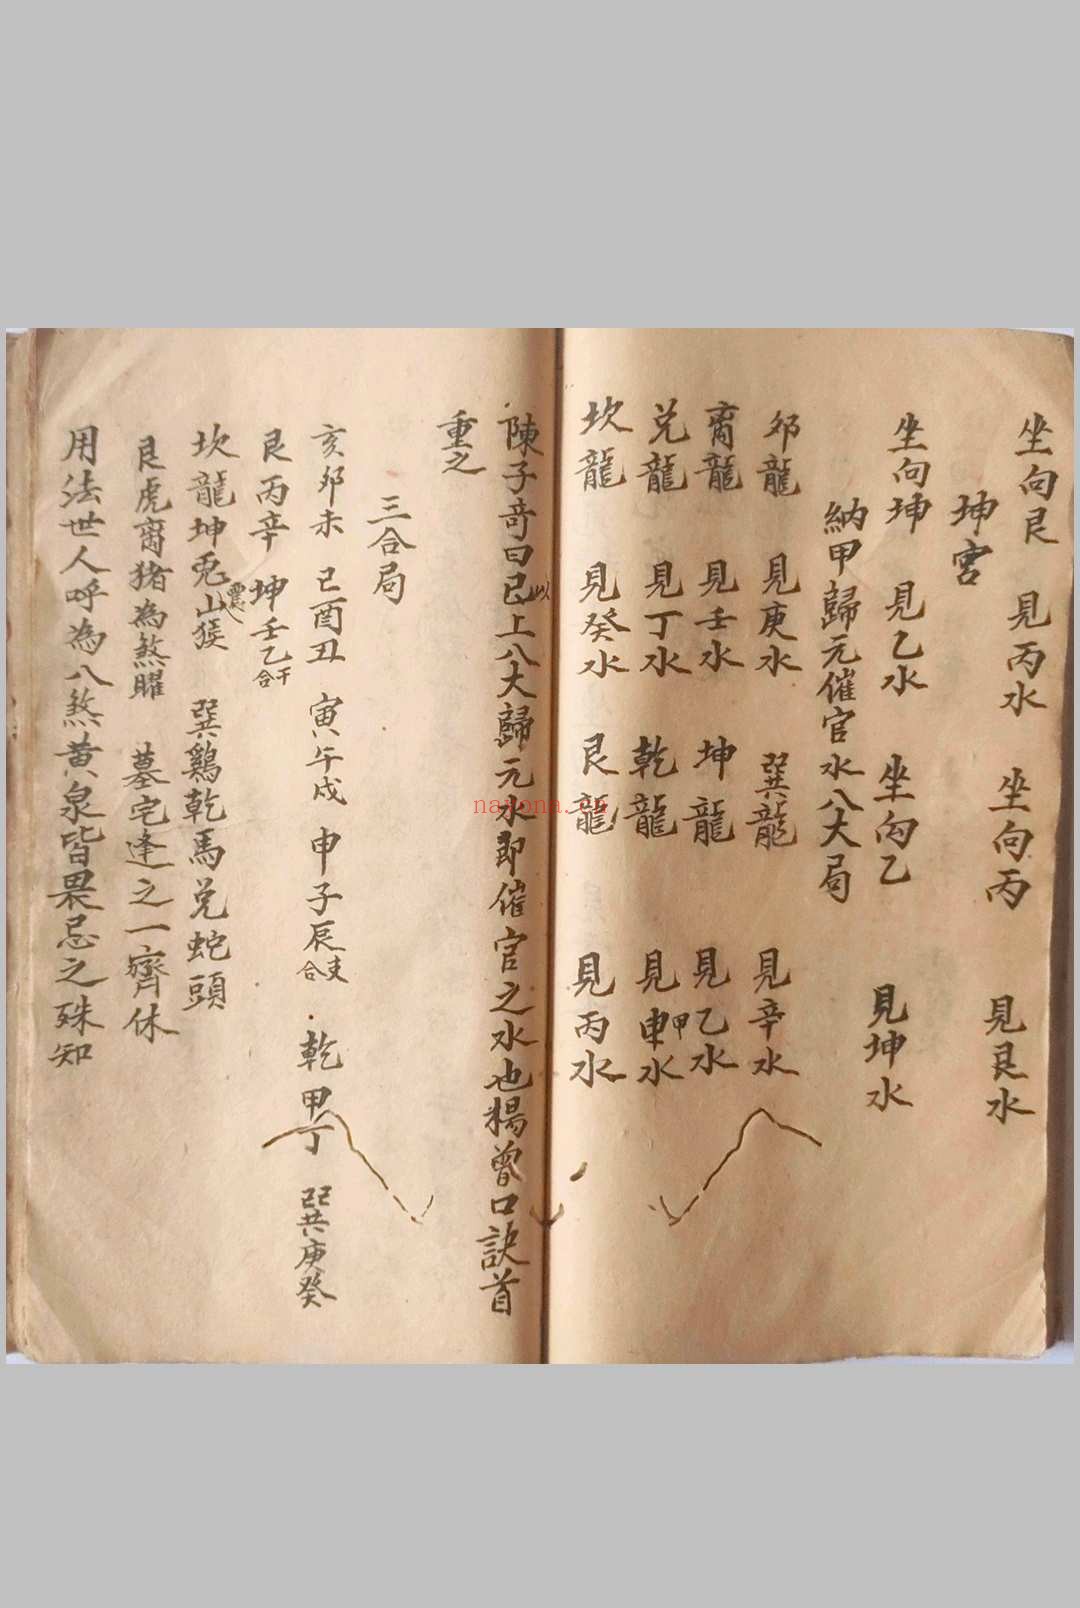 坐向艮　見丙水　坐向丙　見艮水
坤宮
坐向坤　見乙水　坐向乙　見坤水
納甲歸元催官水八大局
卯龍　見庚水　巽龍　見辛水
离龍　見壬水　坤龍　見乙水
兌龍　見丁水　乾龍　見申甲水
坎龍　見癸水　艮龍　見丙水
陳子奇曰已以上八大歸元水即催官之水也楊曾口訣首
重之
三合局
亥卯未　巳酉丑　寅午戌　申子辰支合　乾甲丁　巽庚癸
艮丙辛　坤壬乙干合
坎龍坤兎震山猴　巽鷄乾馬兌蛇頭
艮虎离猪為煞曜　墓宅逢之一齊休
用法世人呼為八煞黄泉皆畏忌之殊知
nayona.cn